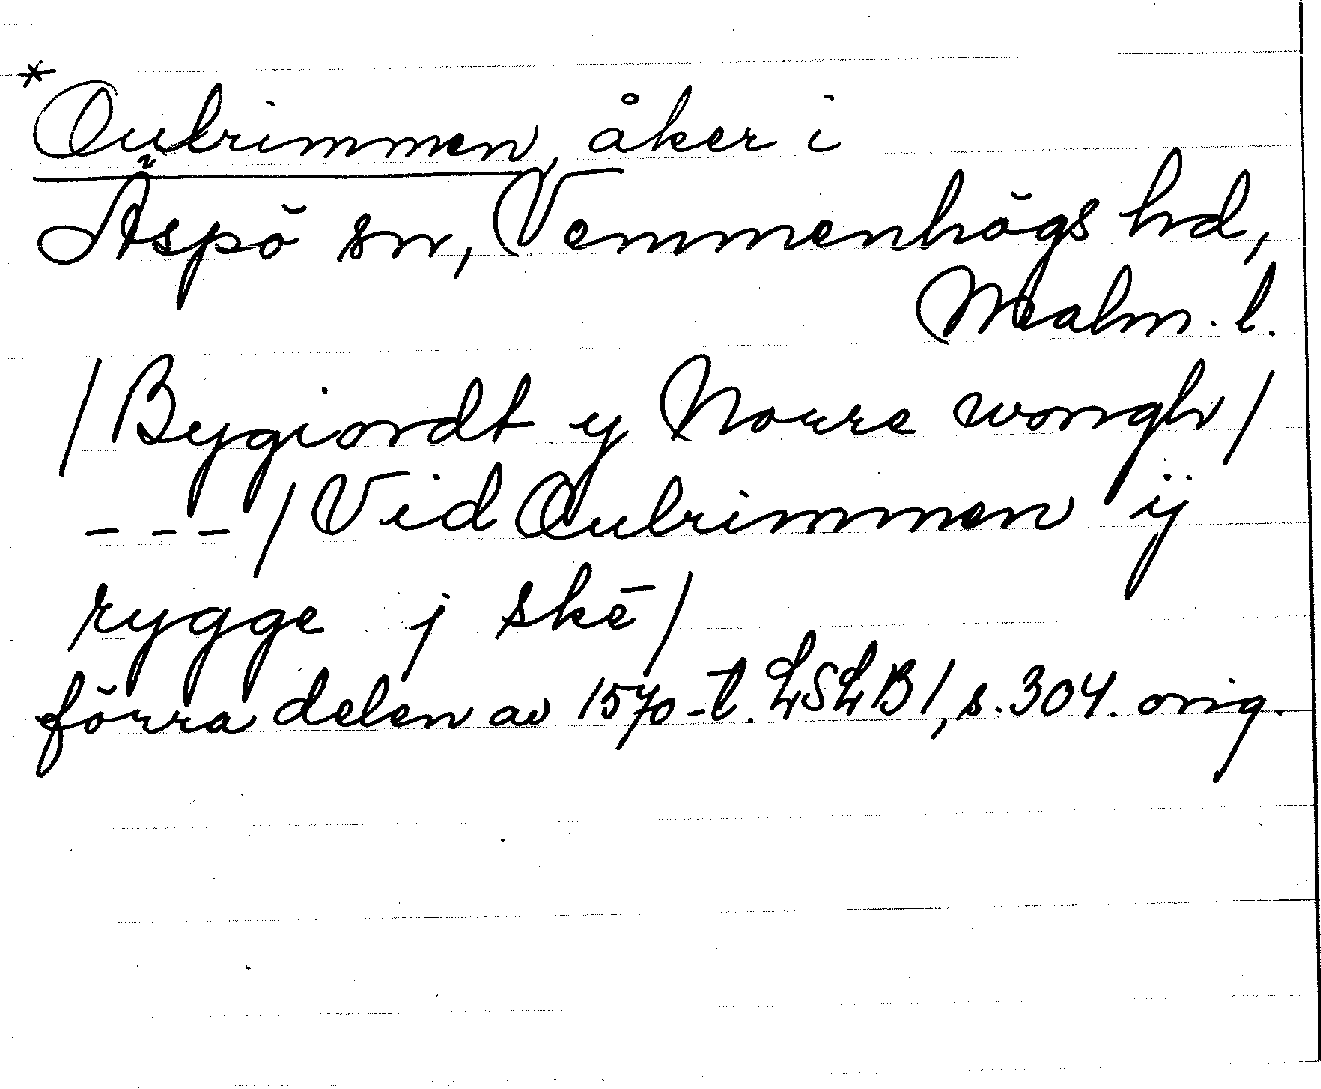 *Oulrimmen, åker i
Äspö sn, Vemmenhögs hd,
Malm. l.
/Bygiordt y Norre wongh/
---/Vid Oulrimmen ÿ
rygge j skē/
förra delen av 1570-t. LSLB1, s. 304. orig.